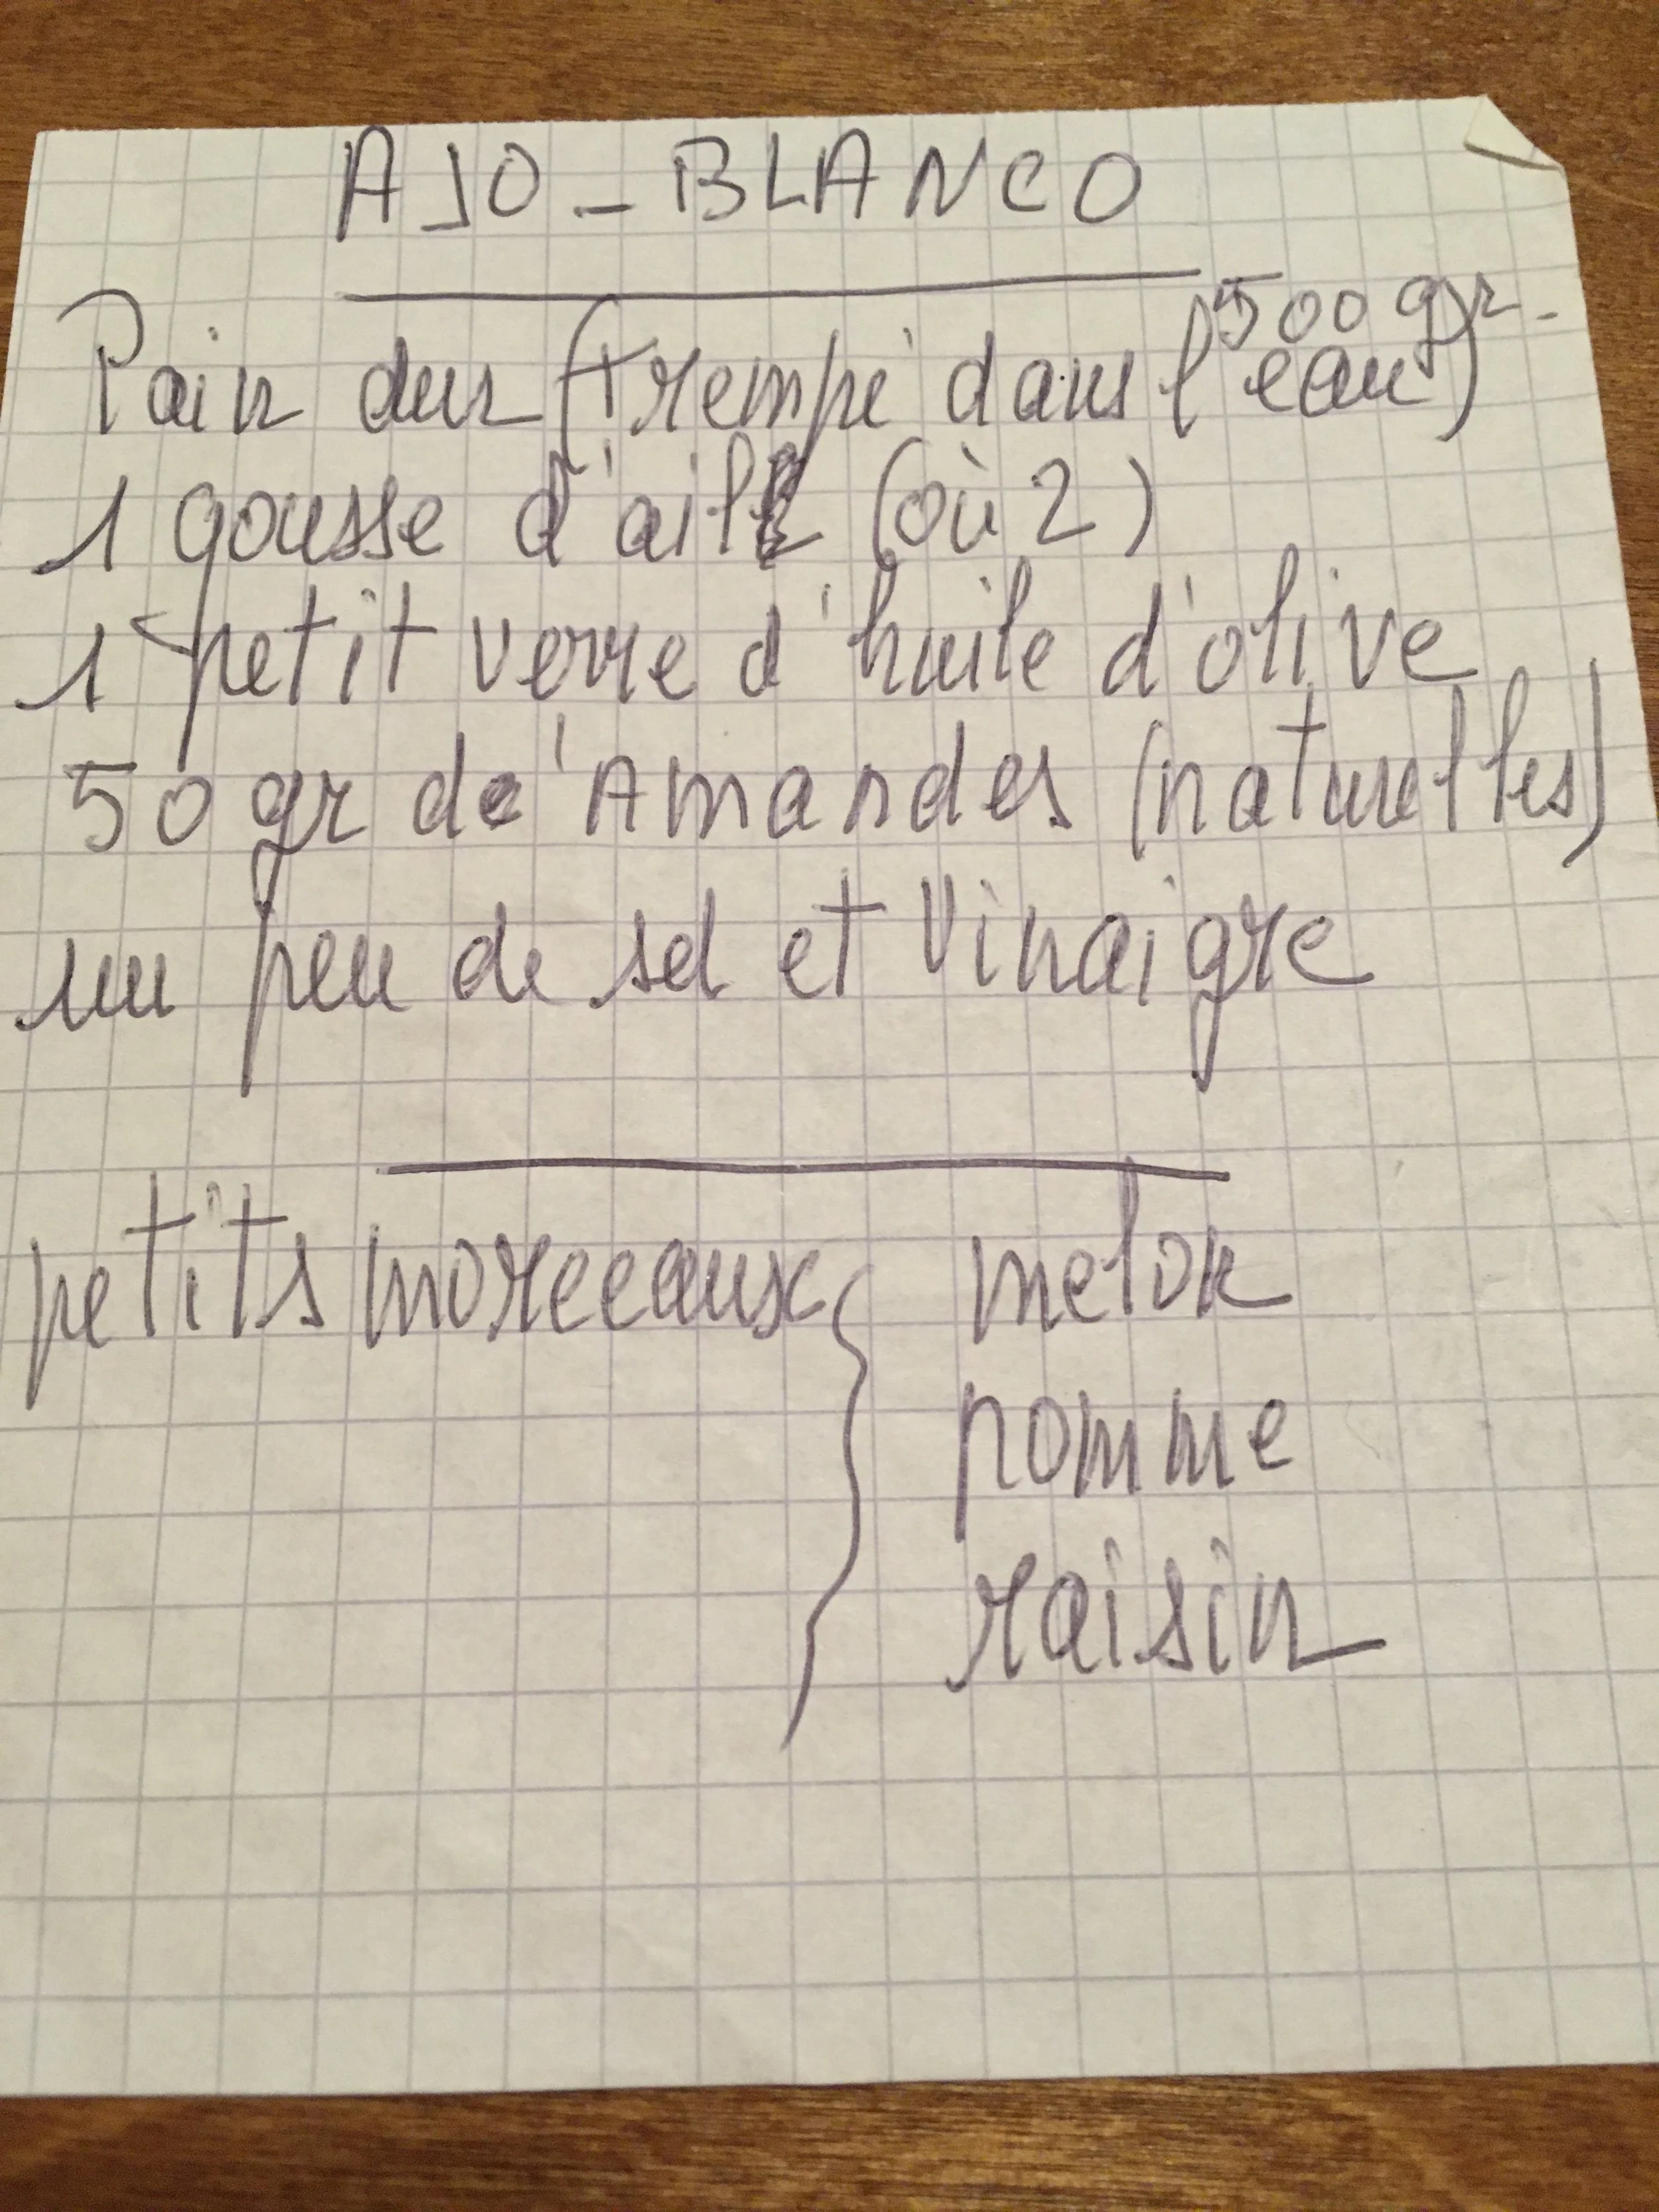 AJO-BLANCO
500 gr.
Pain dur (trempé dans l'eau)
1 gousse d'ail (où 2)
1 petit verre d'huile d'olive
50 gr de'Amandes (naturelles)
un peu de sel et Vinaigre
petits morceeaux { melon
pomme
raisin